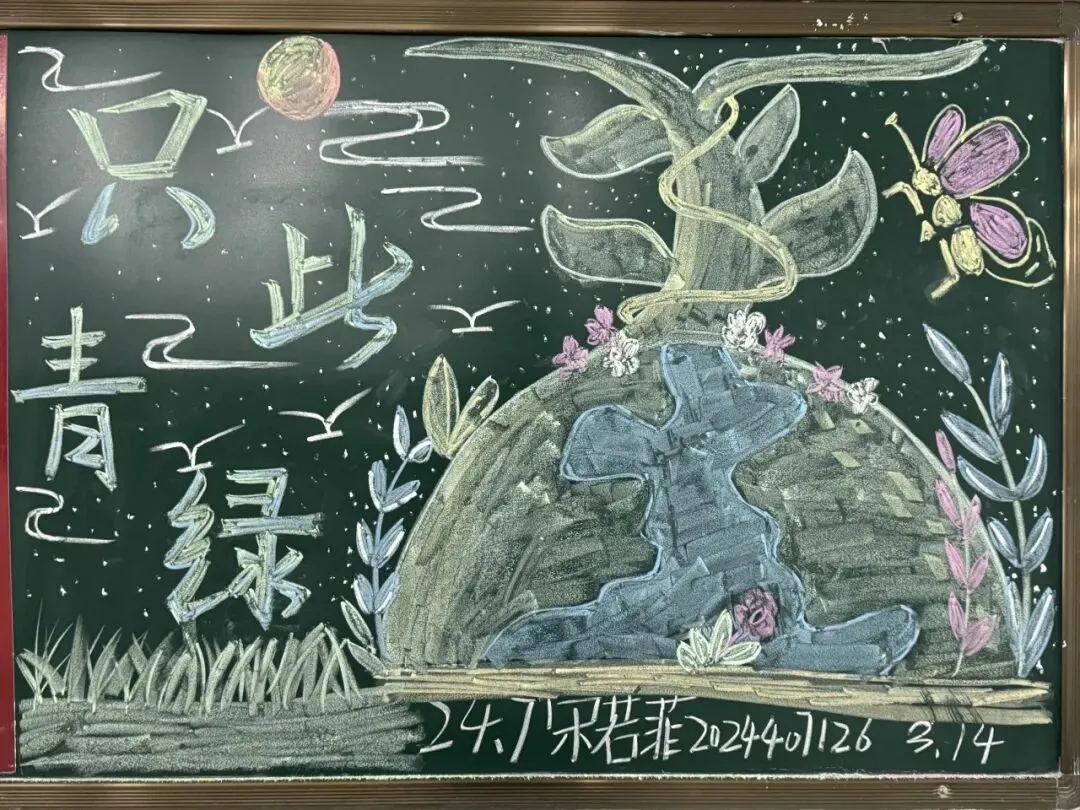 只此
青绿
24.7 宋若菲 2024407126 3.14